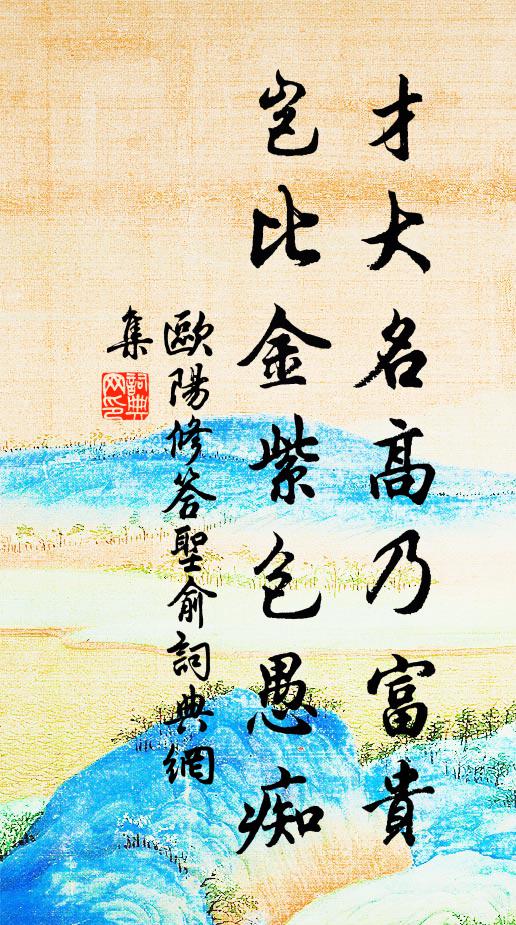 才大名高乃富貴
豈比金紫包愚痴
歐陽修答聖俞詞典網
集
詞典
网印